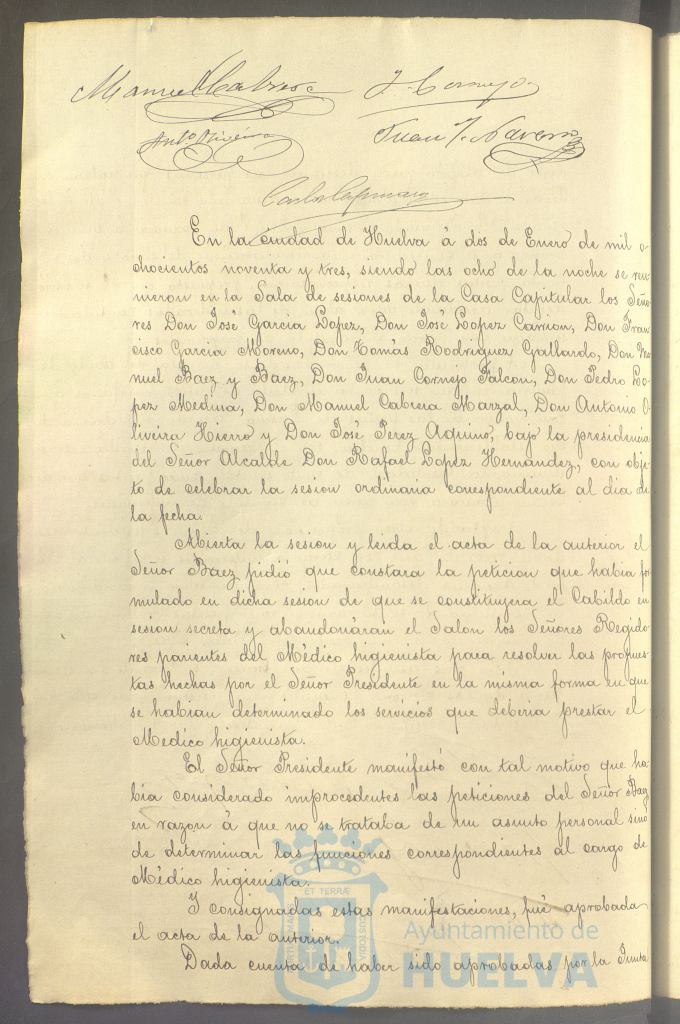 Manuel Cabrera J. Cornejo
Antº Oliveira Juan J. Navarro
Carlos
En la ciudad de Huelva á dos de Enero de mil o-
chocientos noventa y tres, siendo las ocho de la noche se reu-
nieron en la Sala de sesiones de la Casa Capitular los Seño-
res Don José Garcia Lopez, Don José Lopez Carrion, Don Fran-
cisco Garcia Moreno, Don Tomás Rodriguez Gallardo, Don Ma-
nuel Baez y Baez, Don Juan Cornejo Falcon, Don Pedro Lo-
pez Medina, Don Manuel Cabrera Marzal, Don Antonio O-
liveira Hierro y Don José Perez Aquino, bajo la presidencia
del Señor Alcalde Don Rafael Lopez Hernandez, con obje-
to de celebrar la sesion ordinaria correspondiente al dia de
la fecha.
Abierta la sesion y leida el acta de la anterior el
Señor Baez pidió que constara la peticion que habia for-
mulado en dicha sesion de que se constituyera el Cabildo en
sesion secreta y abandonáran el Salon los Señores Regido-
res parientes del Médico higienista para resolver las propues-
tas hechas por el Señor Presidente en la misma forma en que
se habian determinado los servicios que deberia prestar el
Medico higienista.
El Señor Presidente manifestó con tal motivo que ha-
bia considerado improcedentes las peticiones del Señor Baez
en razon á que no se trataba de un asunto personal sinó
de determinar las funciones correspondientes al cargo de
Médico higienista.
I consignadas estas manifestaciones, fué aprobada
el acta de la anterior.
Dada cuenta de haber sido aprobadas por la Junta
ET TERRÆ
CUSTODIA
Ayuntamiento de
HUELVA